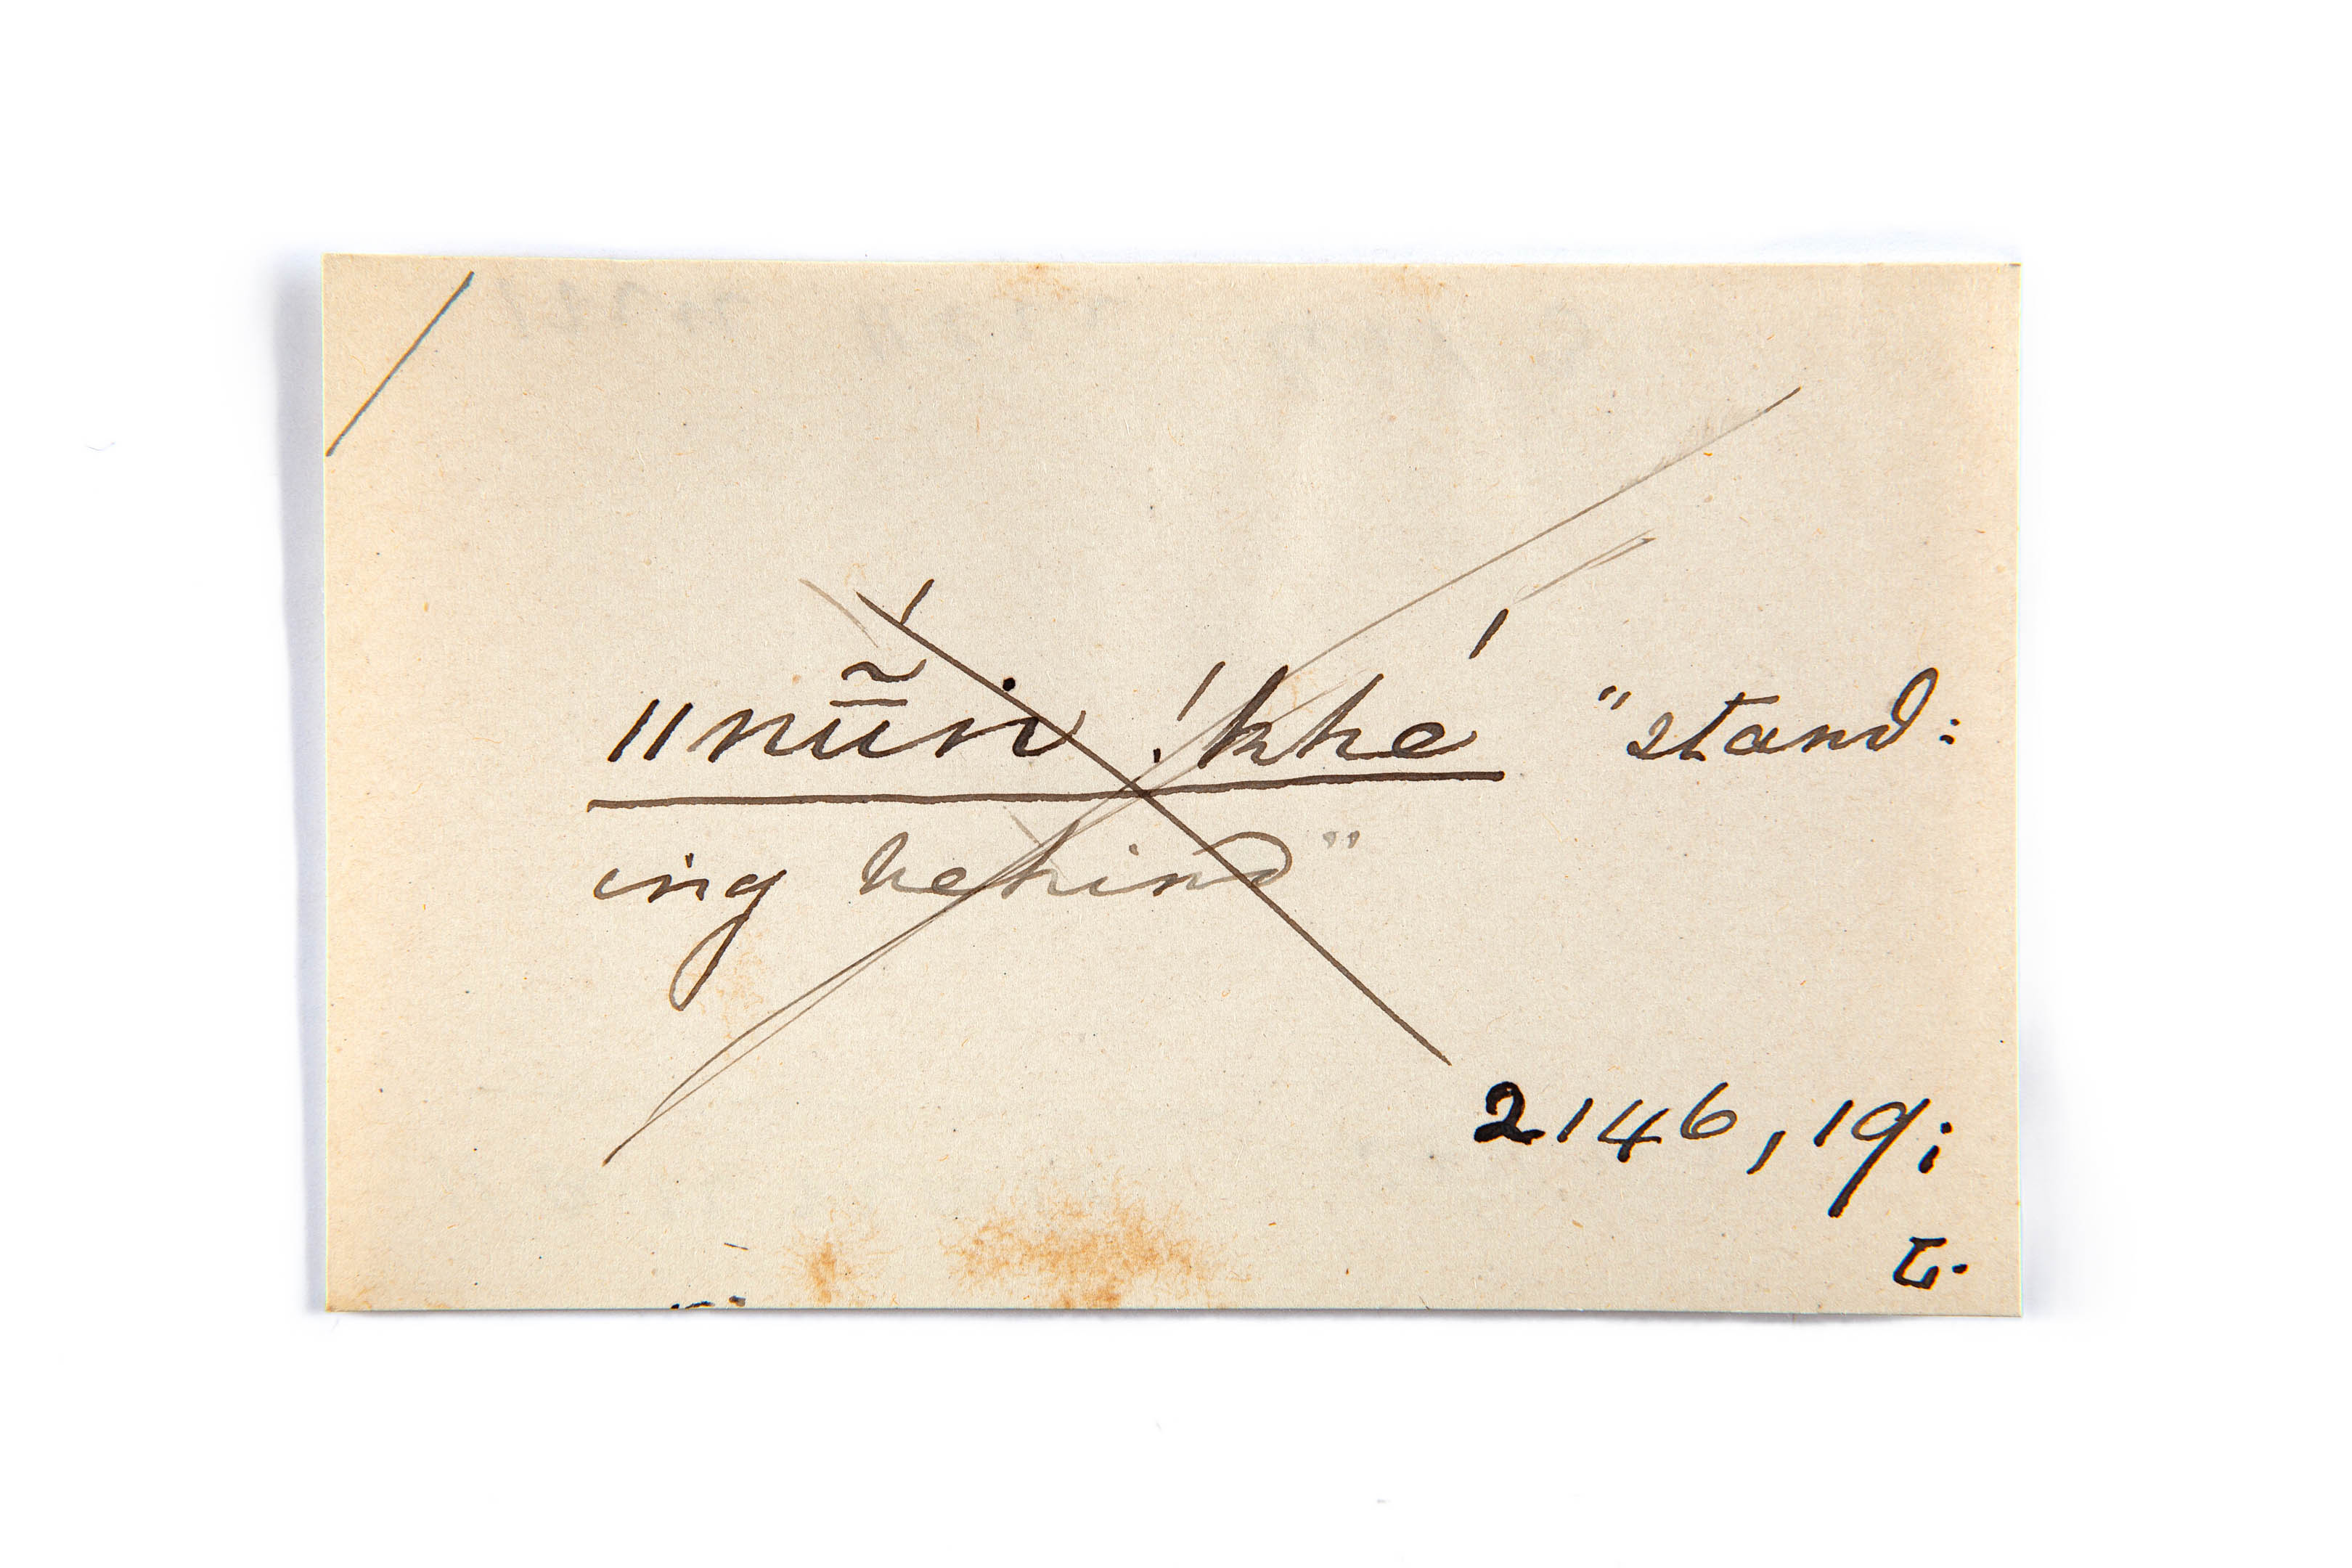 ǁnū̃́ṅ !khé "stand:
ing behind"
2146, 19;
L.